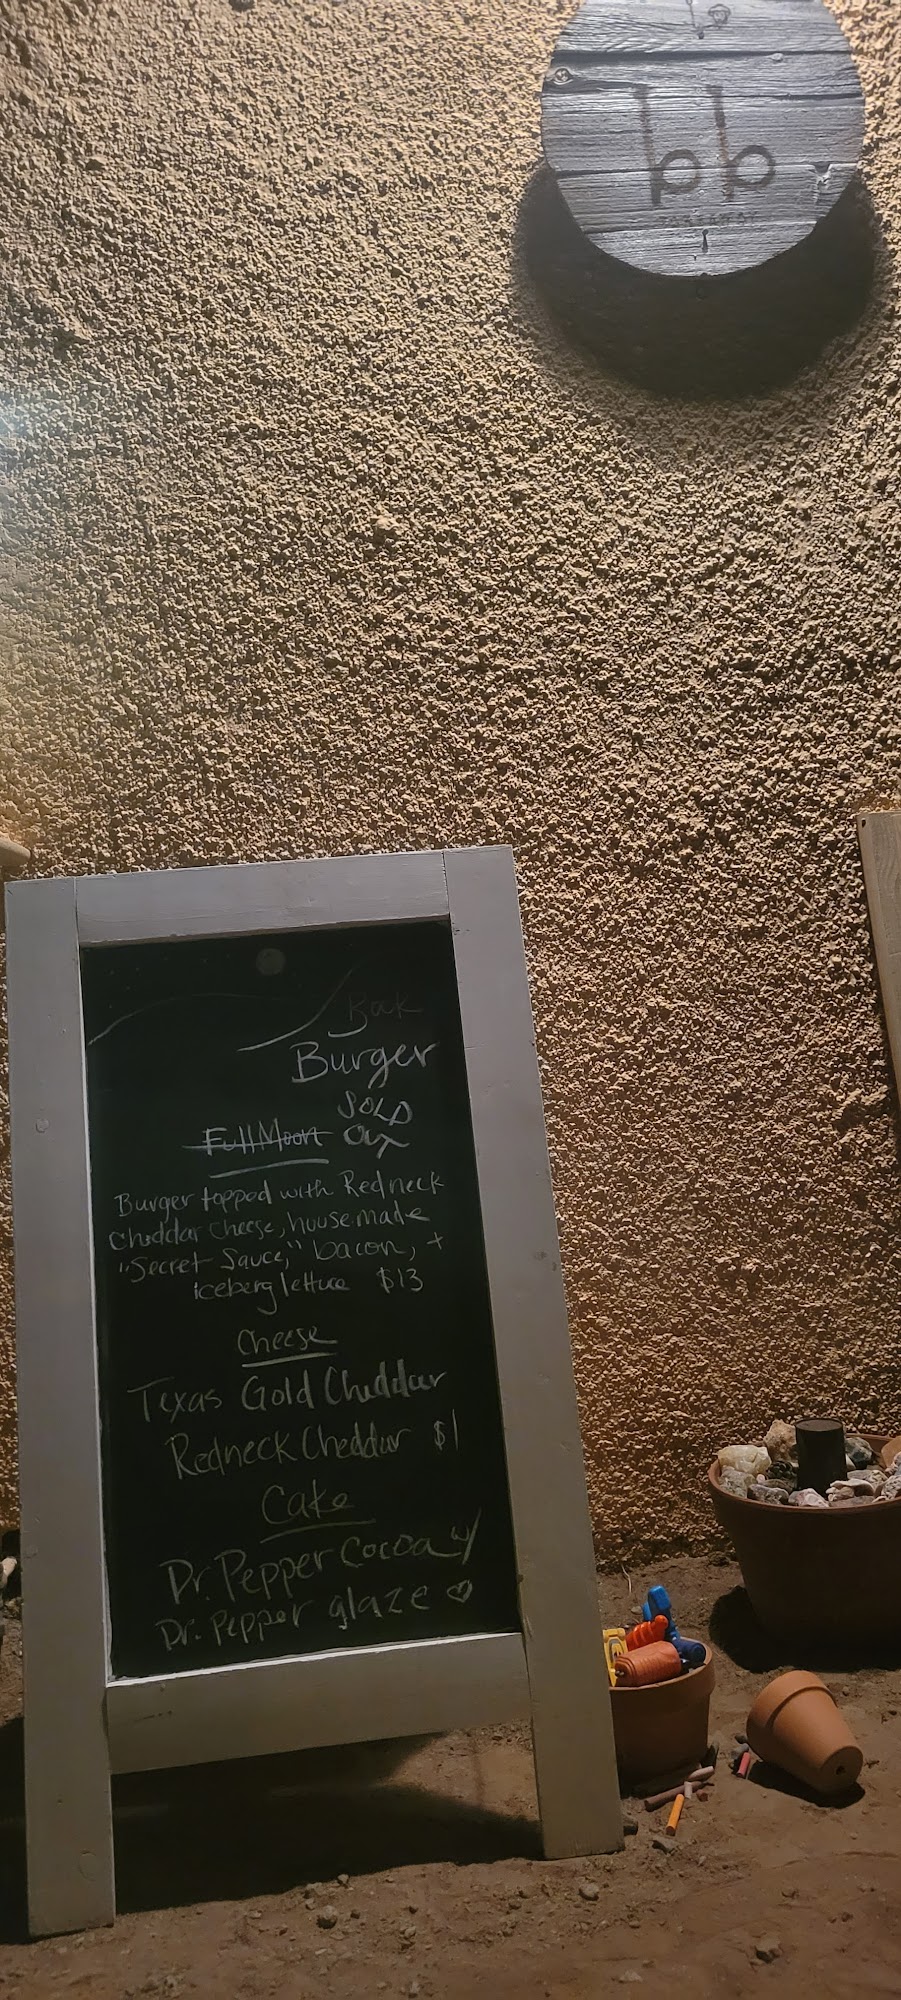 bb
Book
Burger
SOLD
Full Moon OUT
Burger topped with Redneck
Cheddar cheese, housemade
"Secret Sauce," bacon, +
iceberg lettuce $13
Cheese
Texas Gold Cheddar
Redneck Cheddar $1
Cake
Dr. Pepper Cocoa w/
Dr. Pepper glaze ♡